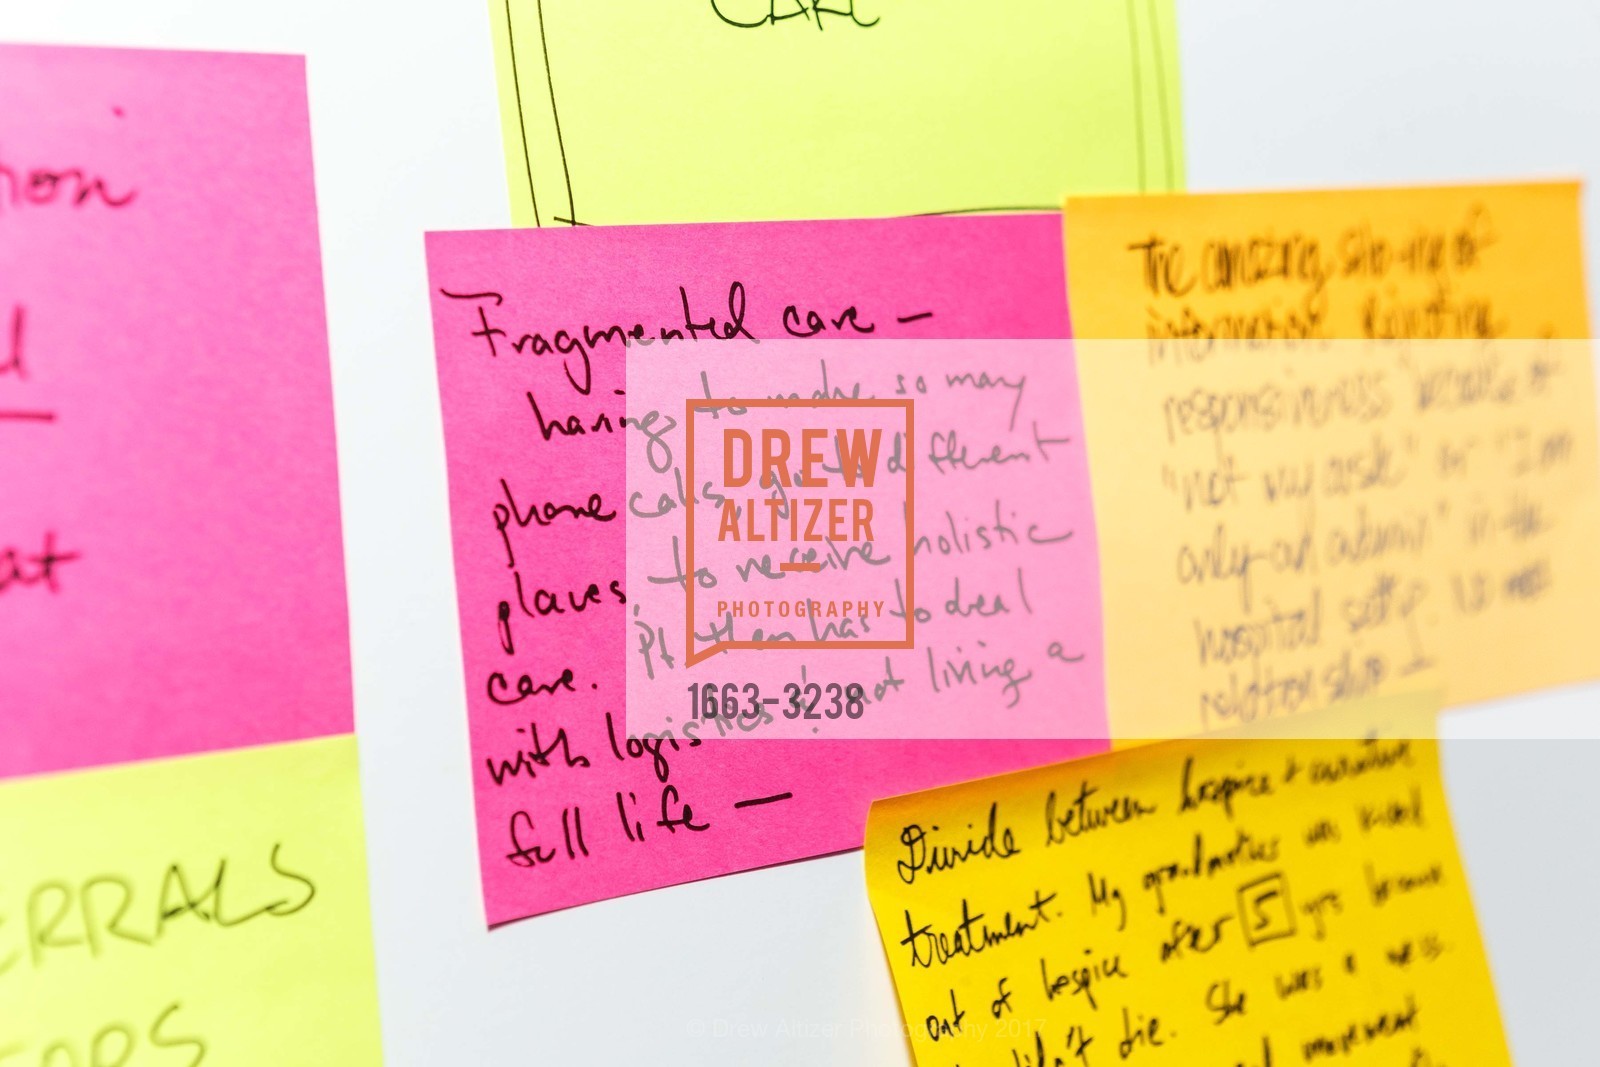 CARE
Fragmented care —
having to make so many
phone calls, go to different
places, to receive holistic
care. Pt. then has to deal
with logistics & not living a
full life —
The amazing silo-ing of
information
responsiveness because of
"not my task" or "I am
only an admin" in the
hospital
relationship
Divide between hospice + curative
treatment. My grandmother was kicked
out of hospice after 5 yrs because
didn't die. She was a
movement
ERRALS
DREW
ALTIZER
PHOTOGRAPHY
1663-3238
© Drew Altizer Photography 2017